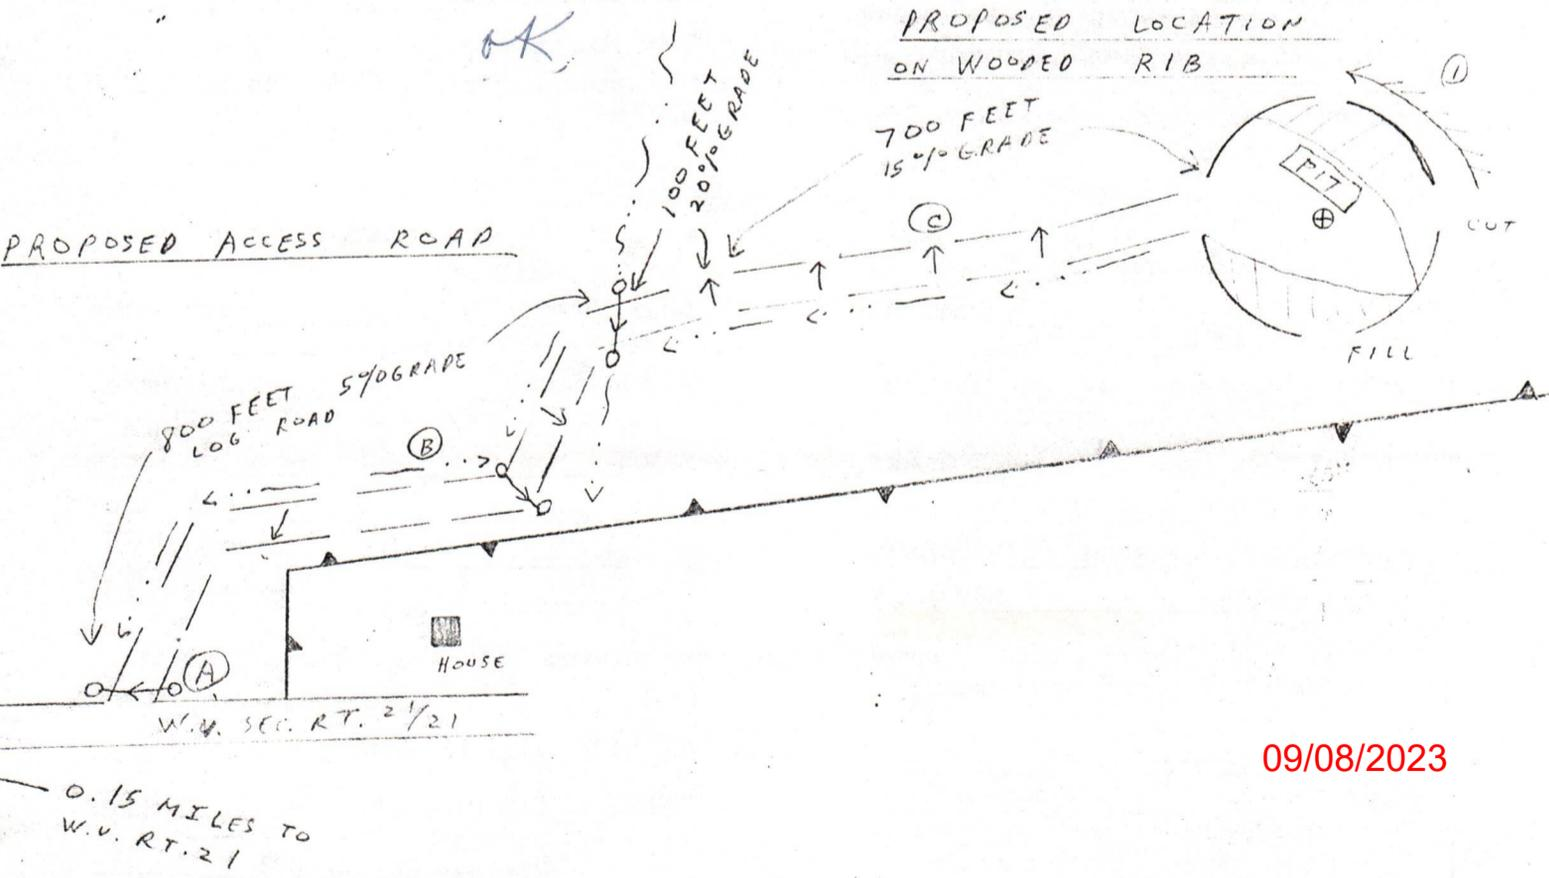 OK,
PROPOSED LOCATION
ON WOODED RIB
①
700 FEET
15% GRADE
100 FEET
20% GRADE
PIT
CUT
C
PROPOSED ACCESS ROAD
FILL
800 FEET 5% GRADE
LOG ROAD
B
A
HOUSE
W.V. SEC. RT. 21/21
09/08/2023
0.15 MILES TO
W.V. RT. 21